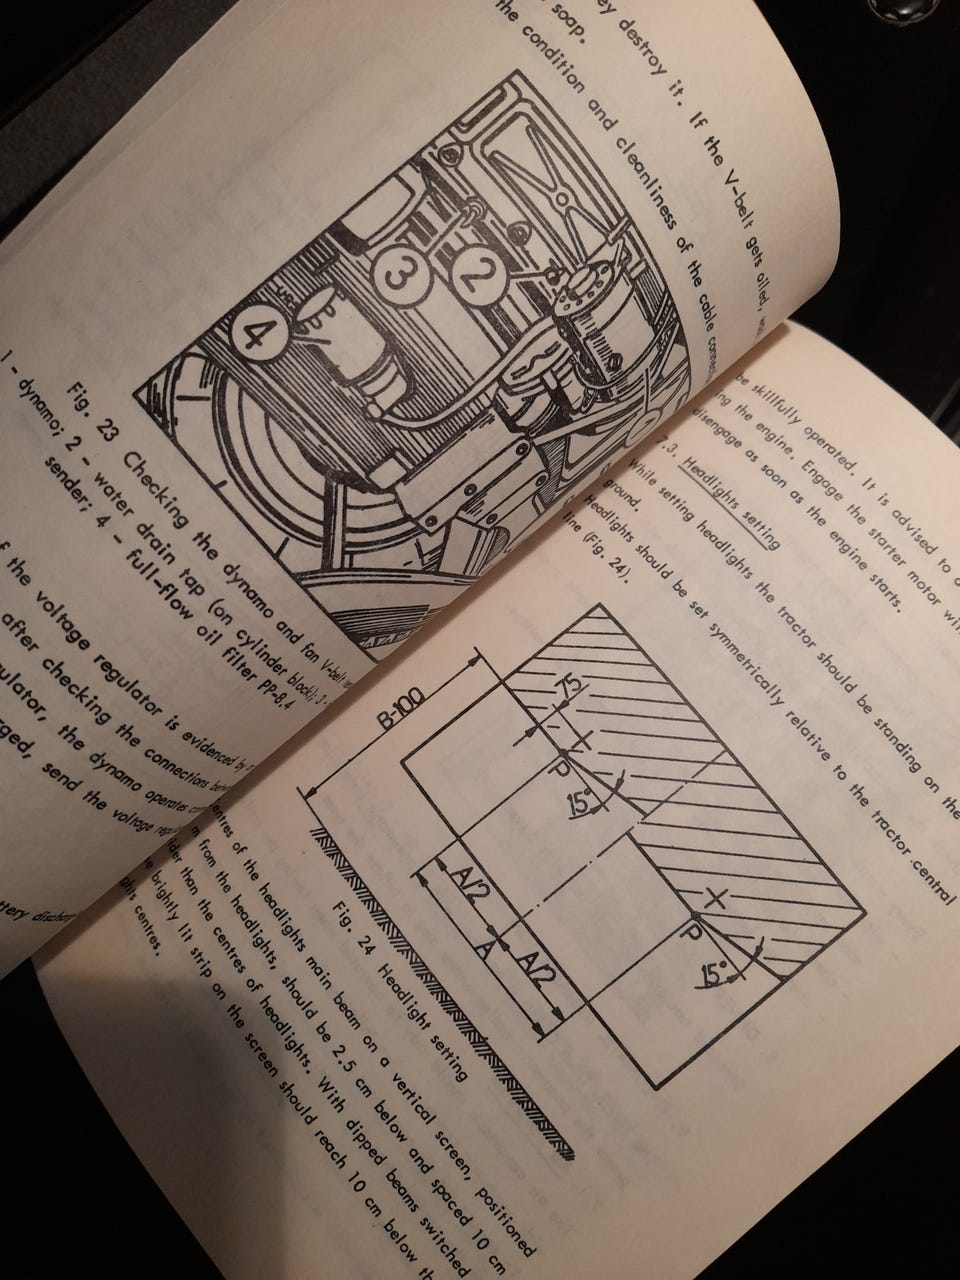 ey destroy it. If the V-belt gets oiled,
soap.
the condition and cleanliness of the cable
4
3
2
Fig. 23 Checking the dynamo and fan V-belt
1 - dynamo; 2 - water drain tap (on cylinder block); 3 -
sender; 4 - full-flow oil filter PP-8,4
f the voltage regulator is evidenced by
after checking the connections
ulator, the dynamo operates
rged, send the voltage
ttery
be skillfully operated. It is advised to
ing the engine. Engage the starter motor
disengage as soon as the engine starts.
7.3. Headlights setting
While setting headlights the tractor should be standing on the
ground.
Headlights should be set symmetrically relative to the tractor central
line (Fig. 24).
B-100
75
P
15°
P
15°
A/2
A
A/2
Fig. 24 Headlight setting
entres of the headlights main beam on a vertical screen, positioned
m from the headlights, should be 2.5 cm below and spaced 10 cm
ider than the centres of headlights. With dipped beams switched
e brightly lit strip on the screen should reach 10 cm below th
ghts centres.